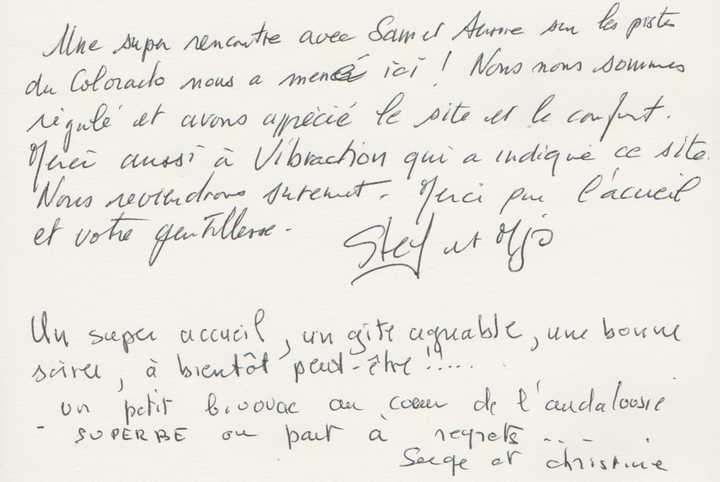 Une super rencontre avec Sam et Aurore sur les pistes
du Colorado nous a mené ici ! Nous nous sommes
régulé et avons apprécié le site et le confort.
Merci aussi à Vibraction qui a indiqué ce site.
Nous reviendrons surement. Merci pour l'accueil
et votre gentillesse.
Stef et Mjo
Un super accueil, un gîte agréable, une bonne
soirée, à bientôt peut-être !!.....
un petit bivouac au coeur de l'andalousie
- SUPERBE on part à regrets...
Serge et christine